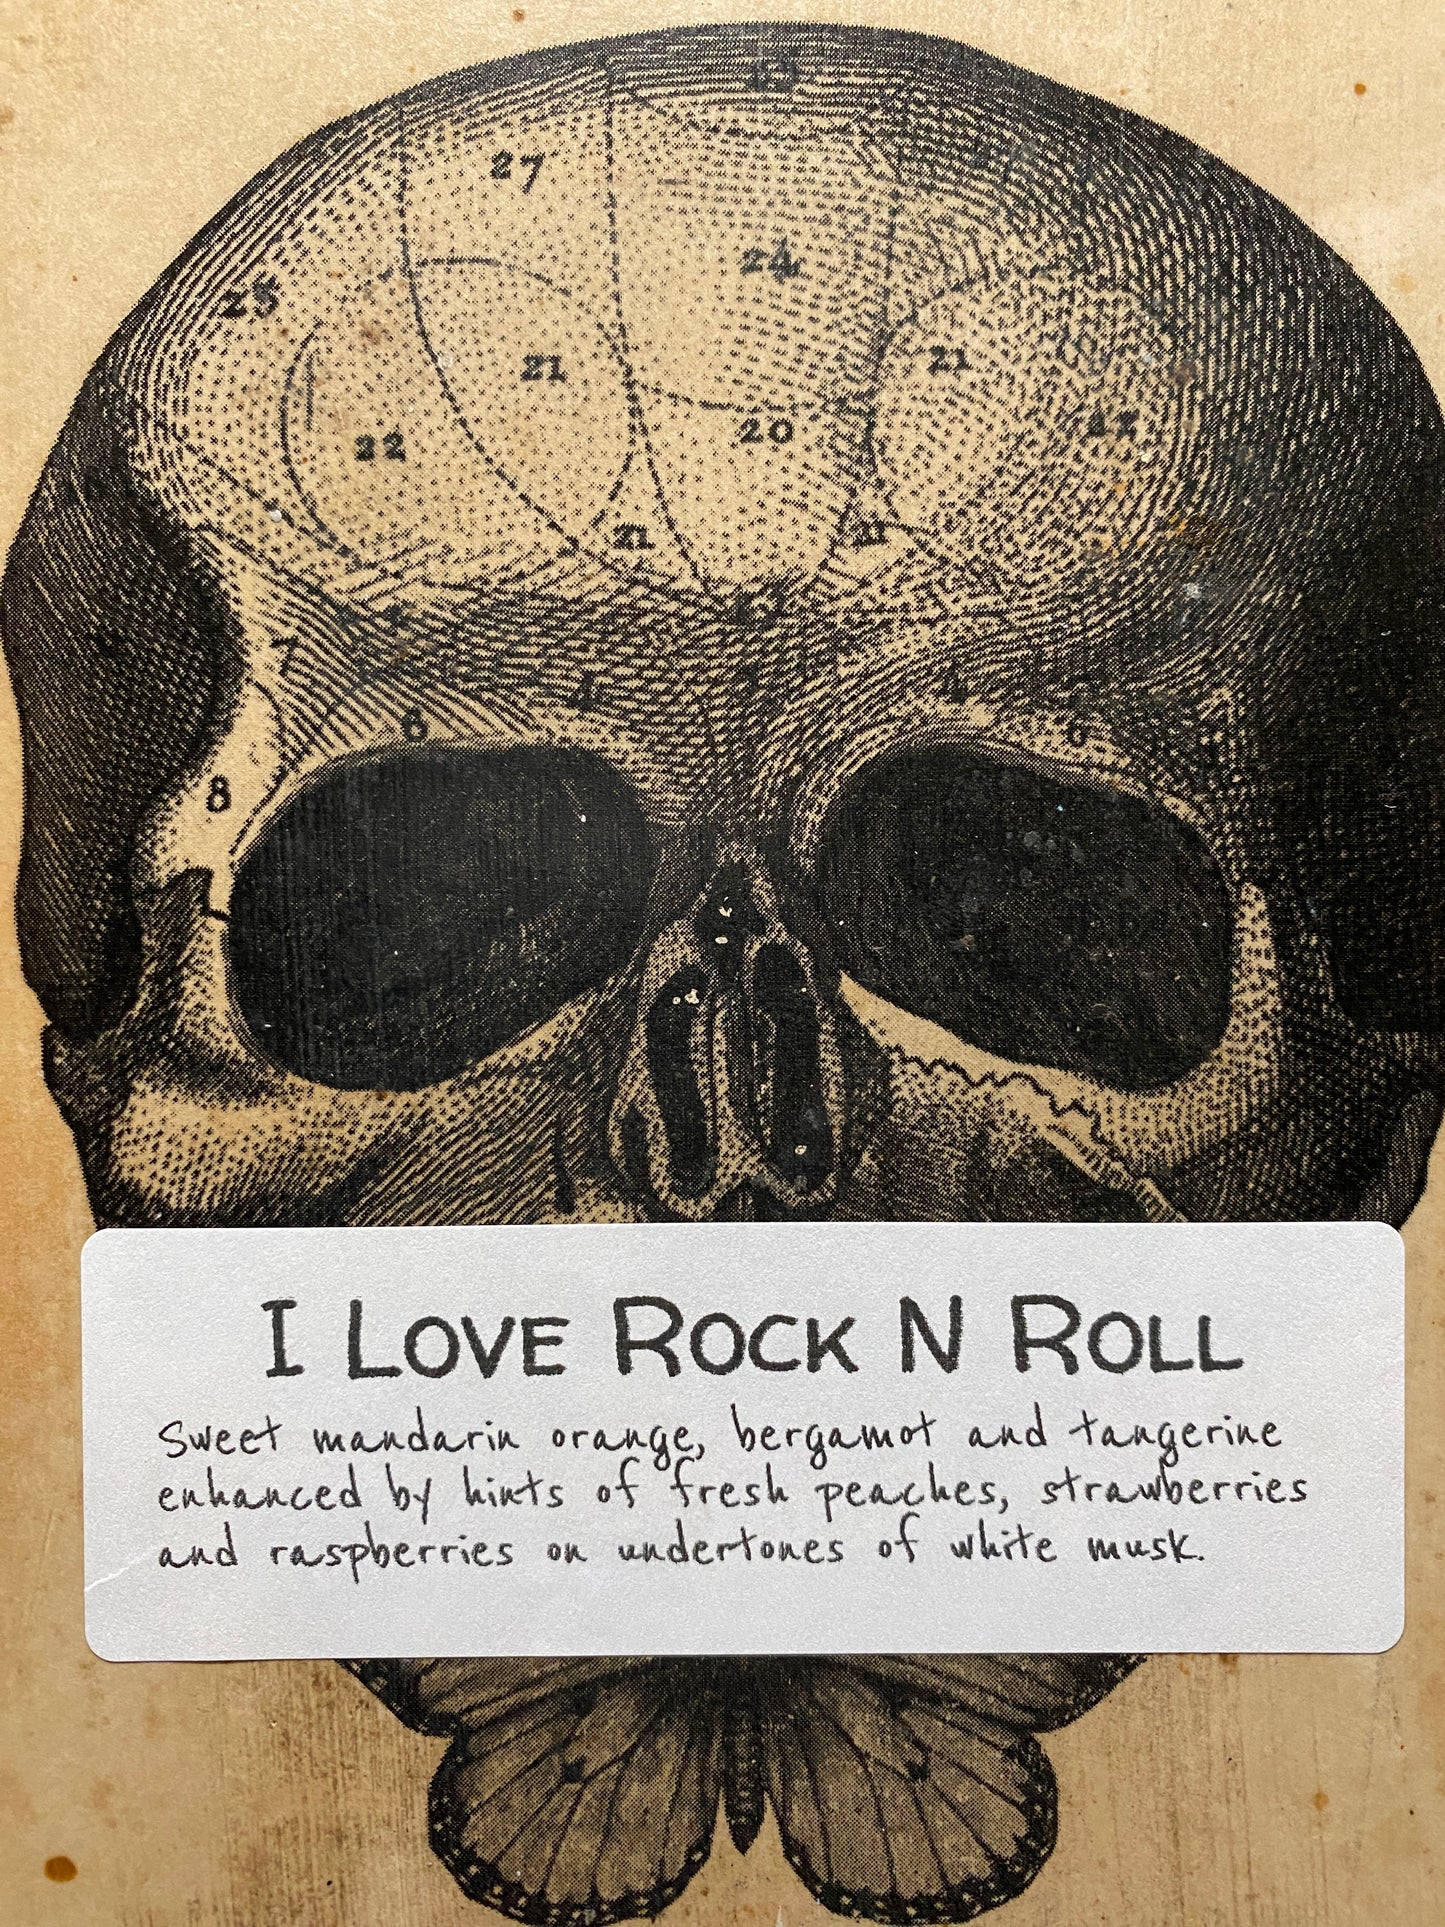 27
24
25
21
21
22
20
21
21
7
6
8
I Love Rock N Roll
Sweet mandarin orange, bergamot and tangerine
enhanced by hints of fresh peaches, strawberries
and raspberries on undertones of white musk.